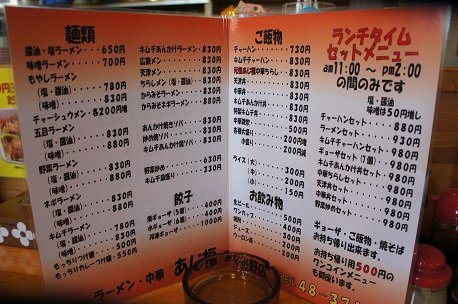 麺類
醤油・塩ラーメン・・・650円
味噌ラーメン・・・・・700円
もやしラーメン
(塩・醤油)・・・780円
(味噌)・・・830円
チャーシュウメン・各200円増
五目ラーメン
(塩・醤油)・・・830円
(味噌)・・・880円
野菜ラーメン
(塩・醤油)・・・830円
(味噌)・・・880円
ネギラーメン
(塩・醤油)・・・830円
(味噌)・・・880円
キムチラーメン・・・780円
もっちりつけ麺・・・550円
もっちりカレーつけ麺・・・550円
キムチあんかけラーメン・・830円
広東メン・・・・830円
天津メン・・・・830円
ちらしメン(塩・醤油)・・830円
からみそラーメン・・・830円
からみそネギラーメン・・・880円
あんかけ焼ソバ・・・830円
炒め焼ソバ・・・・830円
キムチあんかけ焼ソバ・・830円
野菜炒め・・・・630円
キムチ皿盛り・・・330円
餃子
焼ギョーザ(5個)・・・400円
水ギョーザ(6個)・・・400円
冷凍ギョーザ・・・1000円
ご飯物
チャーハン・・・・730円
キムチチャーハン・・・830円
元祖あん福中華ちらし・・830円
天津丼・・・830円
中華丼・・・830円
キムチあんかけ丼・・・830円
特製キムチ丼・・・830円
中華雑炊・・・500円
各種大盛り・・・200円増
小盛り・・・200円減
ライス(大)・・・300円
(中)・・・200円
(小)・・・150円
お飲み物
生ビール
ワンカップ
焼酎
ジュース
ウーロン茶
ランチタイム
セットメニュー
am11:00 ～ pm2:00
の間のみです
塩・醤油
味噌は50円増し
チャーハンセット・・・880円
ラーメンセット・・・930円
キムチチャーハンセット・・・980円
ギョーザセット(7個)・・・930円
キムチあんかけ丼セット
中華ちらしセット
天津丼セット
中華丼セット
野菜炒めセット
ギョーザ・ご飯物・焼そば
お持ち帰り出来ます。
お持ち帰り500円の
ワンコインメニュー
も御座います。
ラーメン・中華 あん福